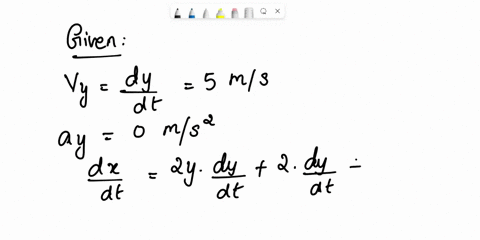 Given:
Vy = dy/dt = 5 m/s
ay = 0 m/s²
dx/dt = 2y · dy/dt + 2 · dy/dt =